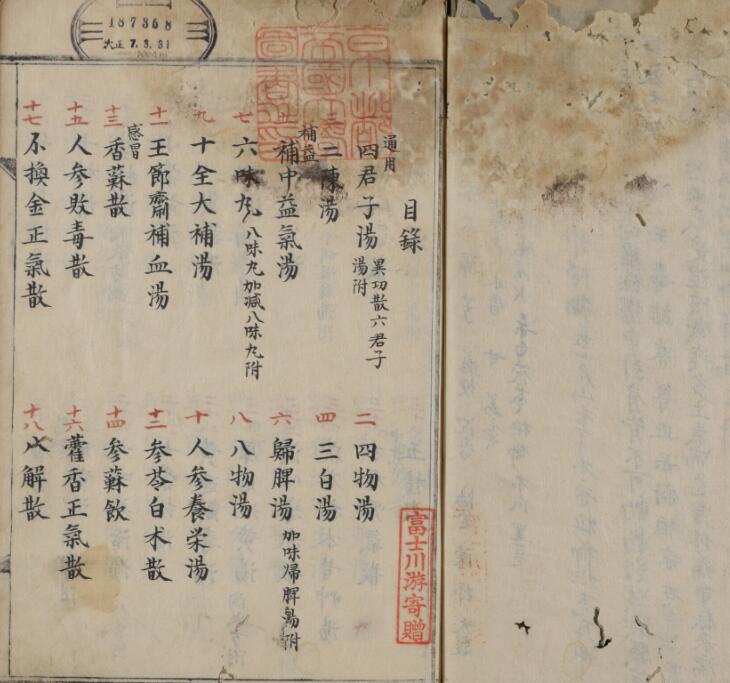 187368
大正 7.3.31
目錄
通用
四君子湯 異功散六君子湯附
二 四物湯
三 二陳湯
四 三白湯
補益
補中益氣湯
六 歸脾湯 加味帰脾湯附
七 六味丸 八味丸加减八味丸附
八 八物湯
九 十全大補湯
十 人參養栄湯
十一 王節齋補血湯
十二 參苓白术散
感冒
十三 香蘇散
十四 參蘇飲
十五 人參敗毒散
十六 藿香正氣散
十七 不換金正氣散
十八 火解散
富士川游寄贈